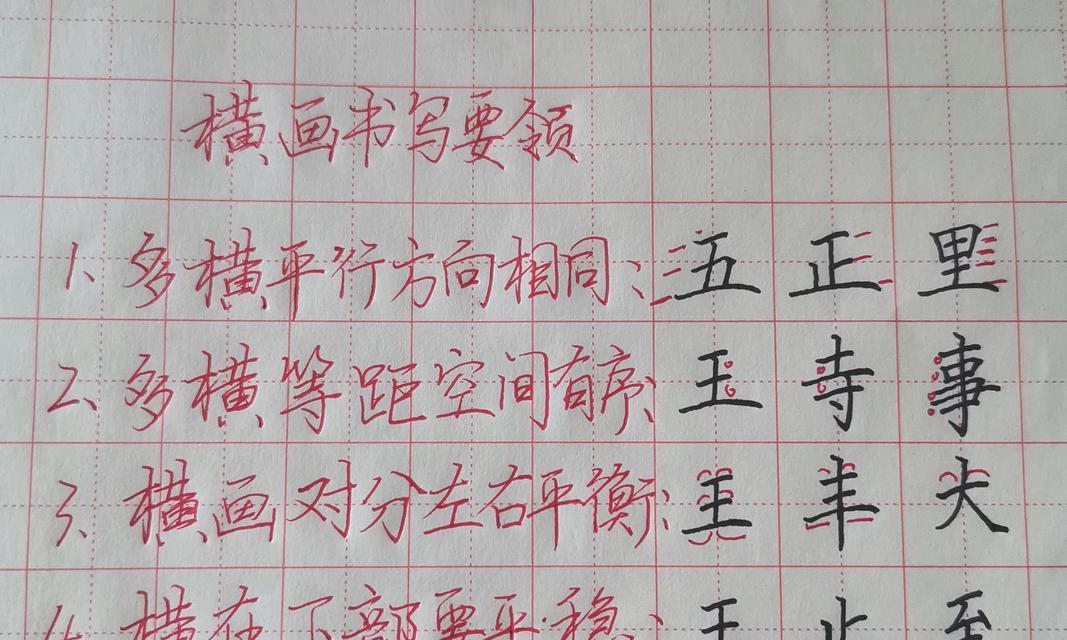 横画书写要领
1、多横平行方向相同：五 正 里
2、多横等距空间有序：玉 寺 事
3、横画对分左右平衡：王 丰 大
4、横在下部要平稳：王 止 至